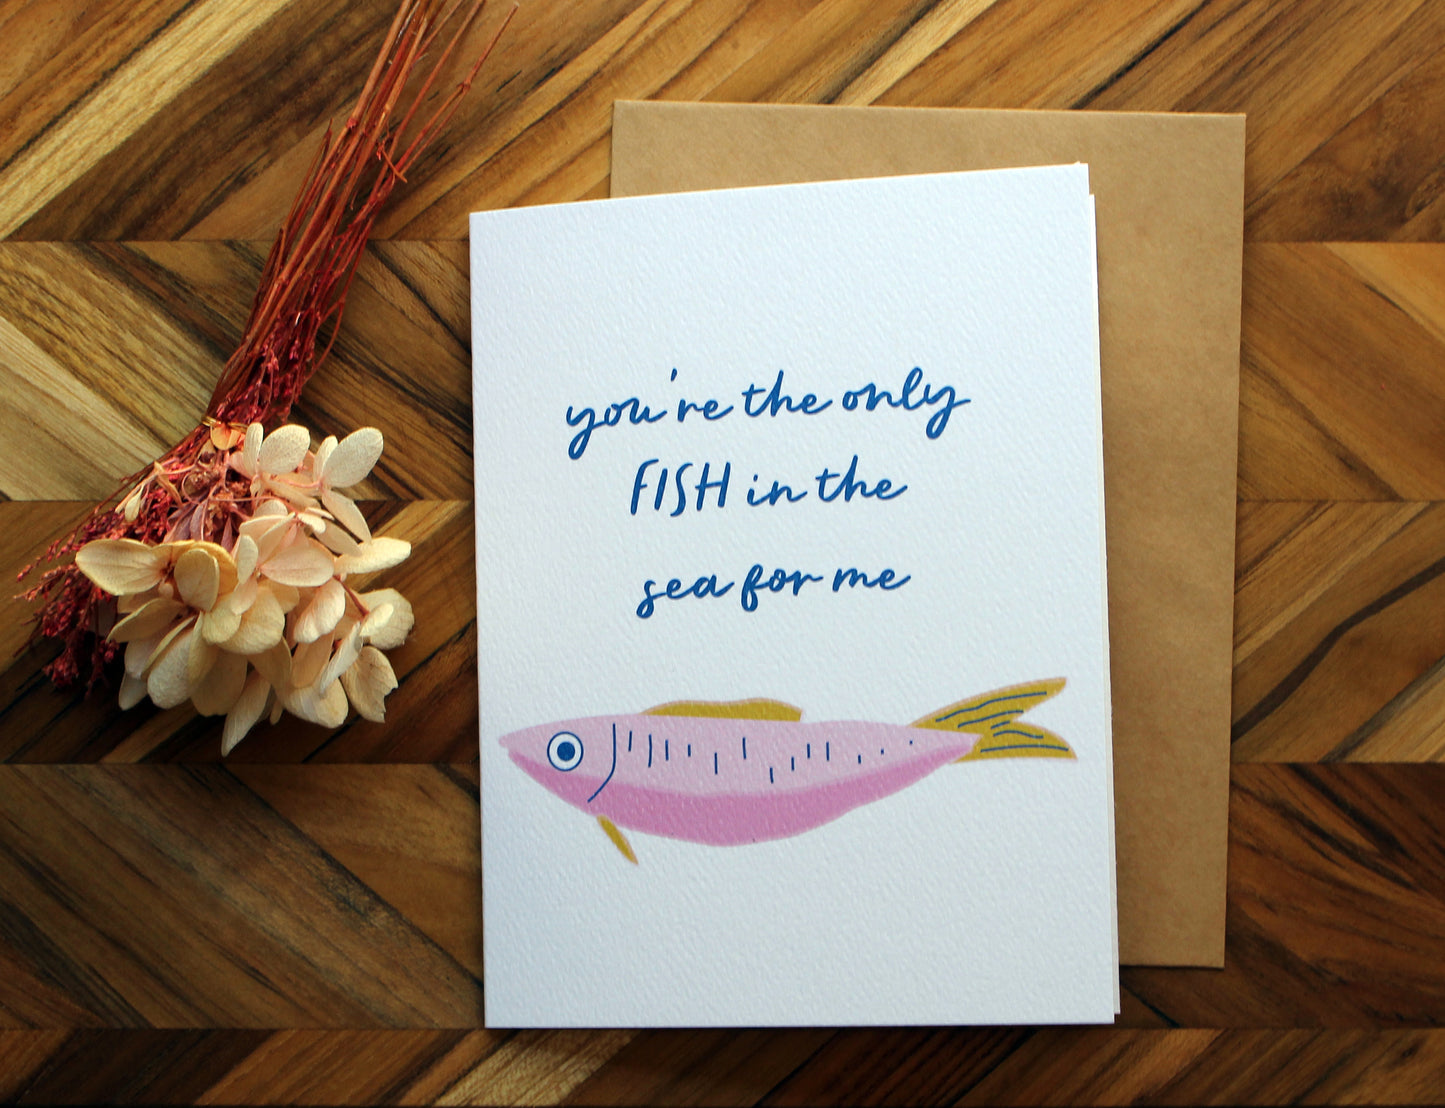 you're the only
FISH in the
sea for me